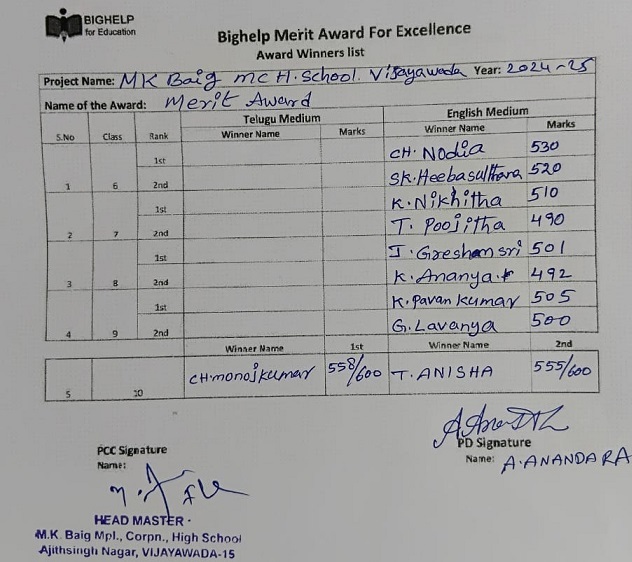 BIGHELP
for Education
Bighelp Merit Award For Excellence
Award Winners list
Project Name: MK Baig mc H.School. Vijayawada Year: 2024-25
Name of the Award: Merit Award
S.No Class Rank Telugu Medium English Medium
Winner Name Marks Winner Name Marks
1st CH. Nodia 530
1 6 2nd SK. Heebasulthara 520
1st K. Nikhitha 510
2 7 2nd T. Poojitha 490
1st J. Greeshansri 501
3 8 2nd K. Ananya 492
1st K. Pavan kumar 505
4 9 2nd G. Lavanya 500
Winner Name 1st Winner Name 2nd
5 10 CH. manojkumar 558/600 T. ANISHA 555/600
PCC Signature
Name:
PD Signature
Name: A. ANANDA RA
HEAD MASTER
M.K. Baig Mpl., Corpn., High School
Ajithsingh Nagar, VIJAYAWADA-15